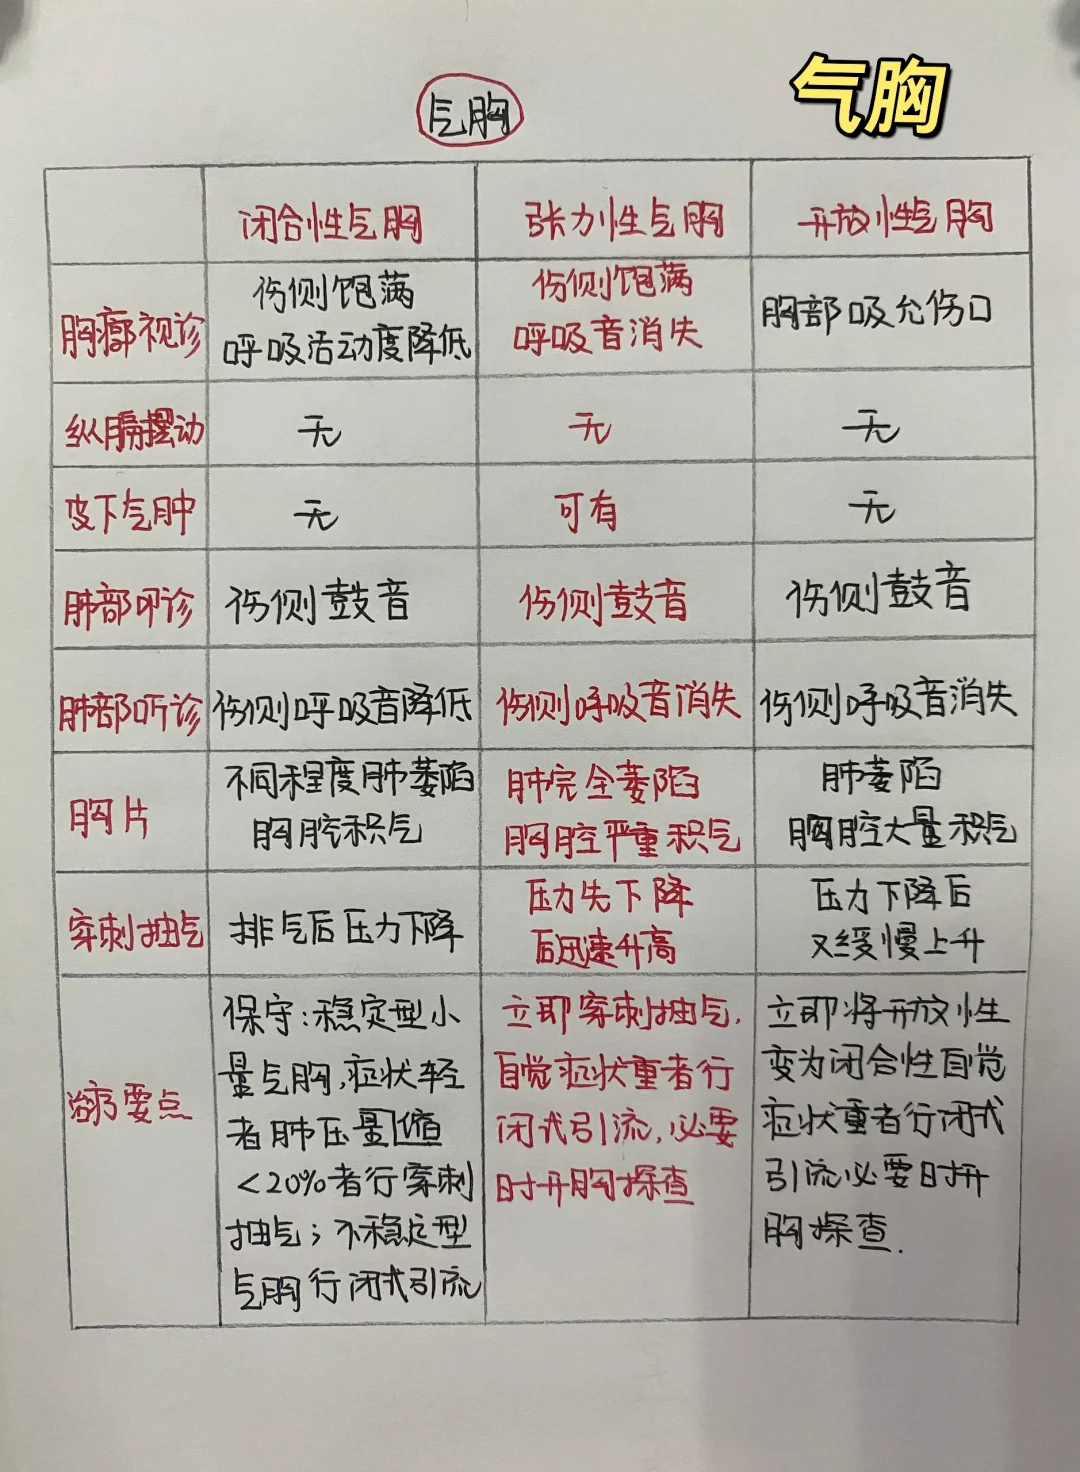 气胸
气胸
闭合性气胸 张力性气胸 开放性气胸
胸廓视诊
伤侧饱满
呼吸活动度降低
伤侧饱满
呼吸音消失
胸部吸允伤口
纵膈摆动 无 无 无
皮下气肿 无 可有 无
肺部叩诊 伤侧鼓音 伤侧鼓音 伤侧鼓音
肺部听诊 伤侧呼吸音降低 伤侧呼吸音消失 伤侧呼吸音消失
胸片
不同程度肺萎陷
胸腔积气
肺完全萎陷
胸腔严重积气
肺萎陷
胸腔大量积气
穿刺抽气
排气后压力下降
压力先下降
后迅速升高
压力下降后
又缓慢上升
治疗要点
保守:稳定型小
量气胸,症状轻
者肺压量缩
<20%者行穿刺
抽气;不稳定型
气胸行闭式引流
立即穿刺抽气,
自觉症状重者行
闭式引流,必要
时开胸探查
立即将开放性
变为闭合性自觉
症状重者行闭式
引流必要时开
胸探查.